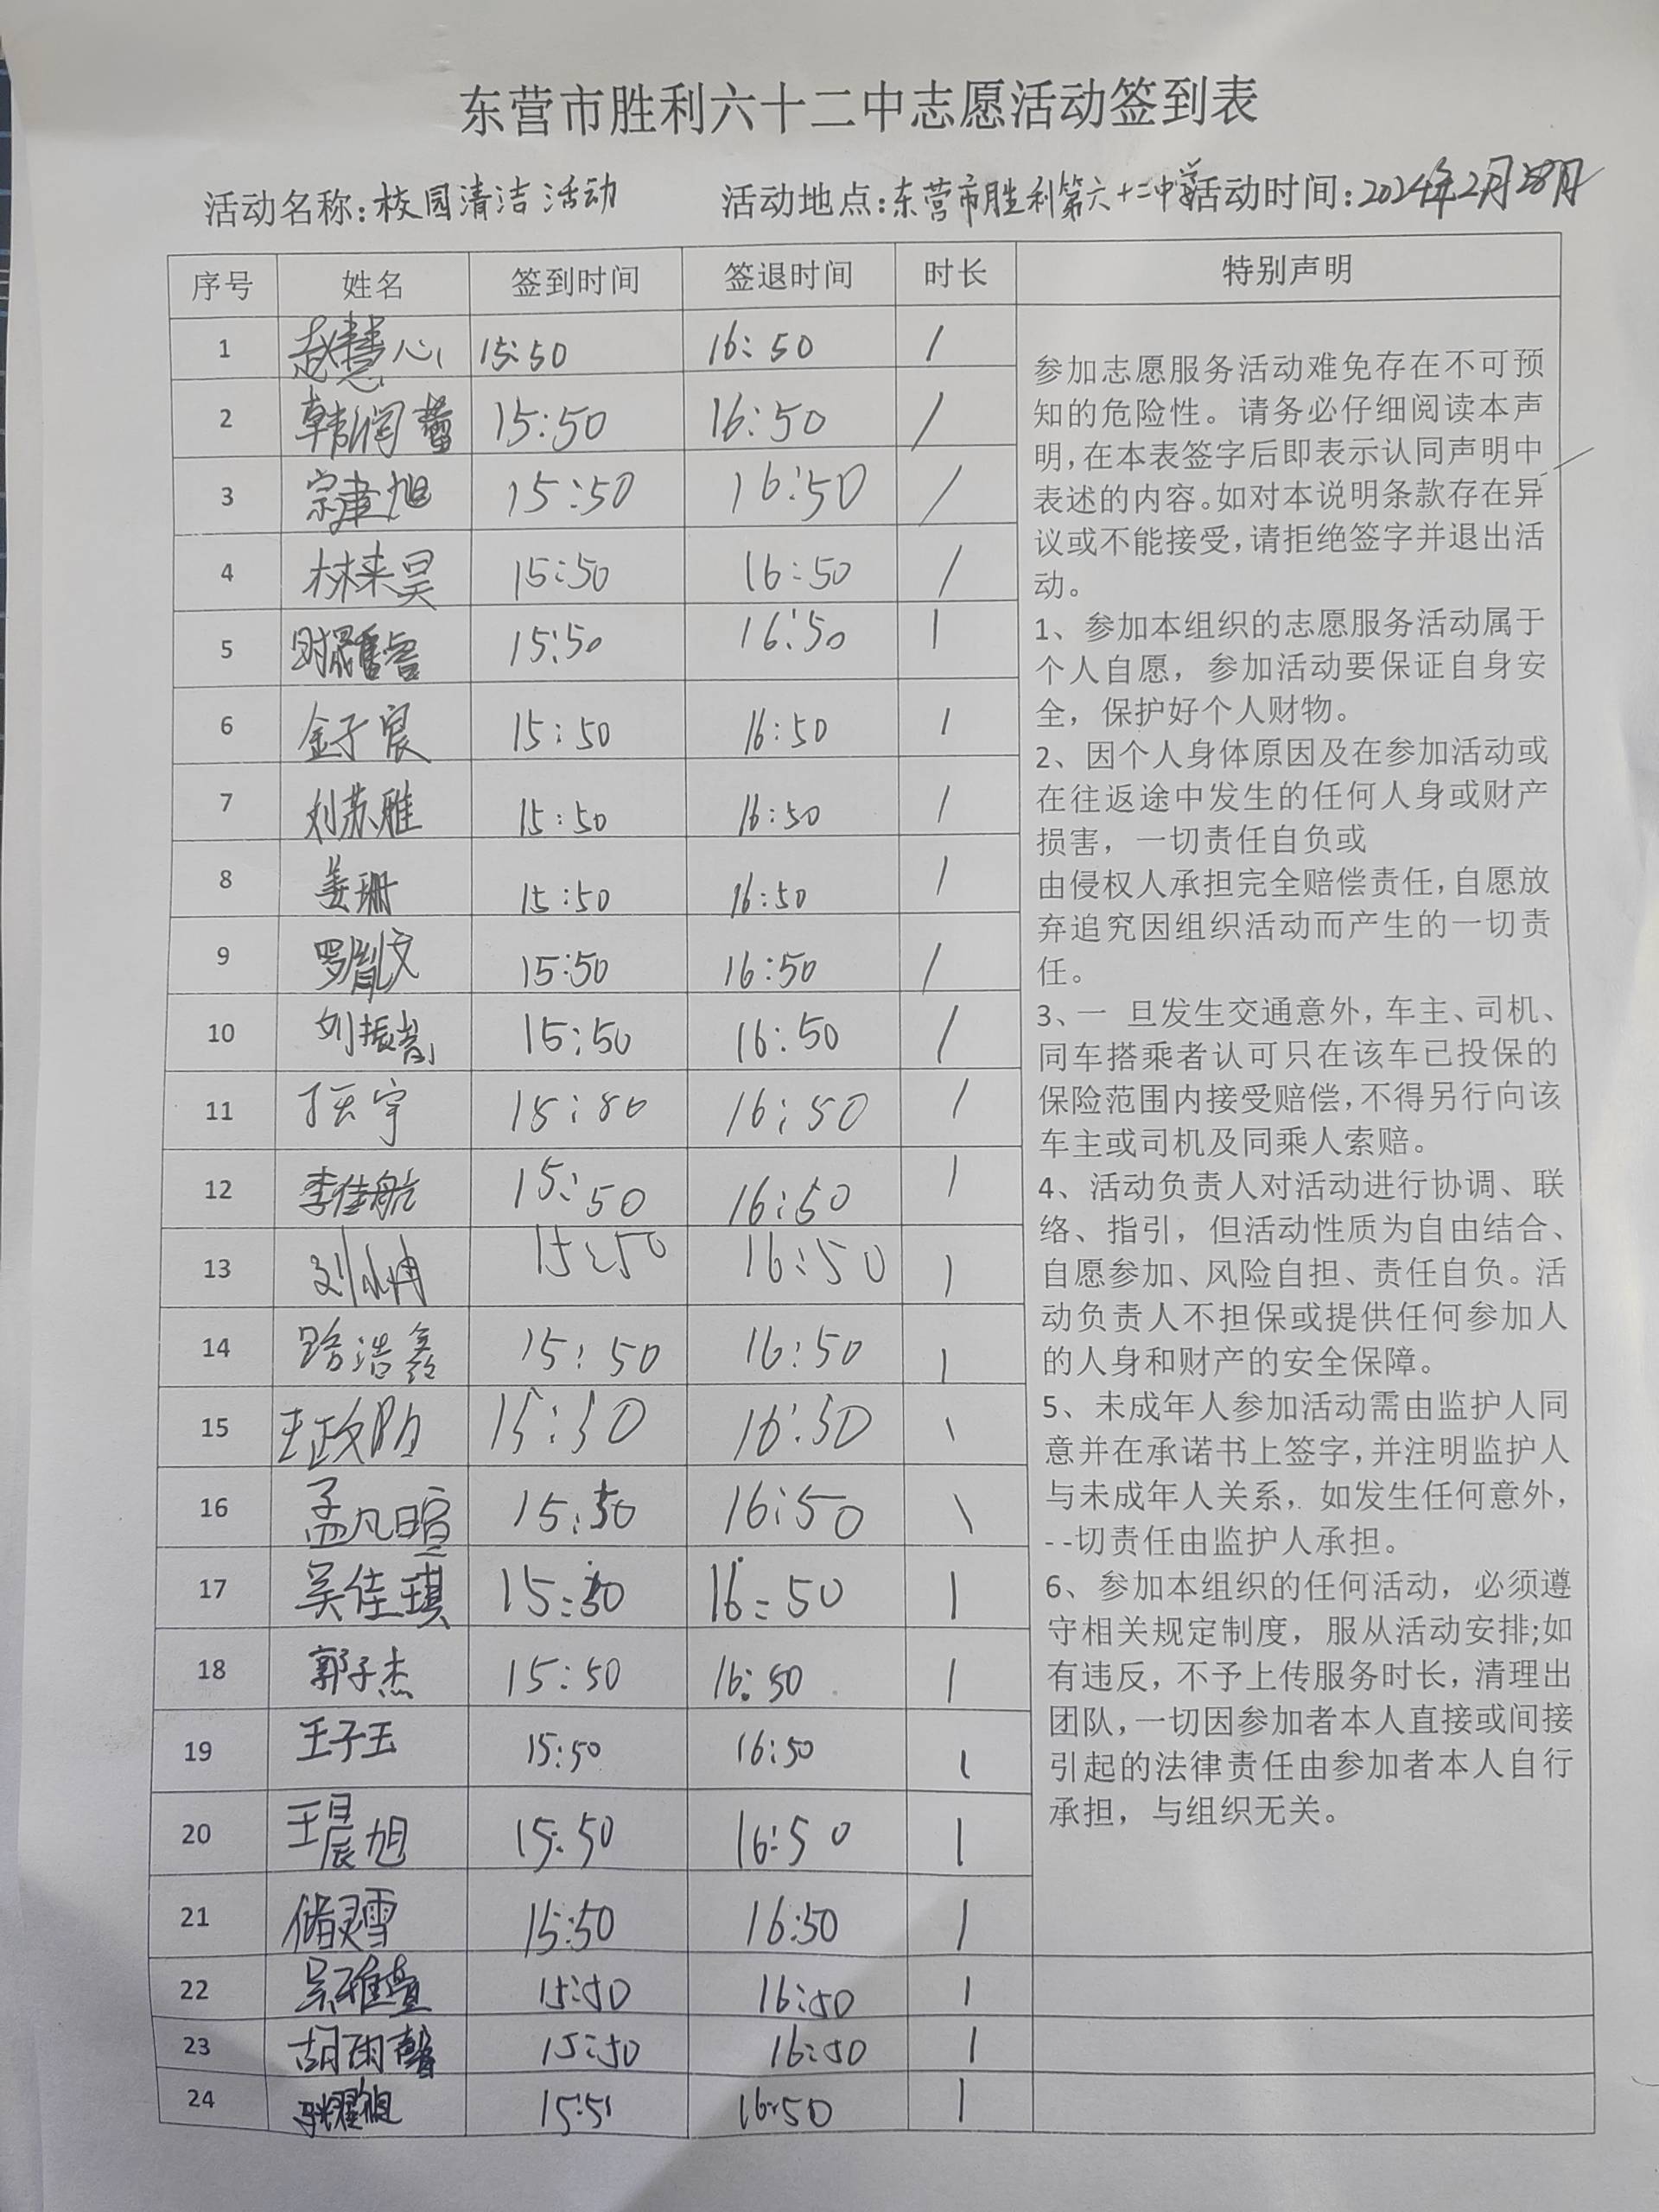 东营市胜利六十二中志愿活动签到表
活动名称:校园清洁活动 活动地点:东营市胜利第六十二中学 活动时间:2024年2月28日
序号 姓名 签到时间 签退时间 时长 特别声明
1 赵慧心 15:50 16:50 1
2 韩润馨 15:50 16:50 1
3 宗建旭 15:50 16:50 1
4 林来昊 15:50 16:50 1
5 15:50 16:50 1
6 金子宸 15:50 16:50 1
7 刘苏雅 15:50 16:50 1
8 姜珊 15:50 16:50 1
9 罗胤文 15:50 16:50 1
10 刘振 15:50 16:50 1
11 宇 15:50 16:50 1
12 李佳航 15:50 16:50 1
13 刘冉 15:50 16:50 1
14 路浩鑫 15:50 16:50 1
15 王政 15:50 16:50 1
16 孟凡暄 15:50 16:50 1
17 吴佳琪 15:50 16:50 1
18 郭子杰 15:50 16:50 1
19 王子玉 15:50 16:50 1
20 王晨旭 15:50 16:50 1
21 储灵雪 15:50 16:50 1
22 吴雅萱 15:50 16:50 1
23 胡雨馨 15:50 16:50 1
24 张耀祖 15:51 16:50 1
参加志愿服务活动难免存在不可预
知的危险性。请务必仔细阅读本声
明,在本表签字后即表示认同声明中
表述的内容。如对本说明条款存在异
议或不能接受,请拒绝签字并退出活
动。
1、参加本组织的志愿服务活动属于
个人自愿，参加活动要保证自身安
全，保护好个人财物。
2、因个人身体原因及在参加活动或
在往返途中发生的任何人身或财产
损害，一切责任自负或
由侵权人承担完全赔偿责任,自愿放
弃追究因组织活动而产生的一切责
任。
3、一 旦发生交通意外,车主、司机、
同车搭乘者认可只在该车已投保的
保险范围内接受赔偿,不得另行向该
车主或司机及同乘人索赔。
4、活动负责人对活动进行协调、联
络、指引，但活动性质为自由结合、
自愿参加、风险自担、责任自负。活
动负责人不担保或提供任何参加人
的人身和财产的安全保障。
5、未成年人参加活动需由监护人同
意并在承诺书上签字,并注明监护人
与未成年人关系,. 如发生任何意外,
--切责任由监护人承担。
6、参加本组织的任何活动，必须遵
守相关规定制度，服从活动安排;如
有违反，不予上传服务时长，清理出
团队,一切因参加者本人直接或间接
引起的法律责任由参加者本人自行
承担，与组织无关。